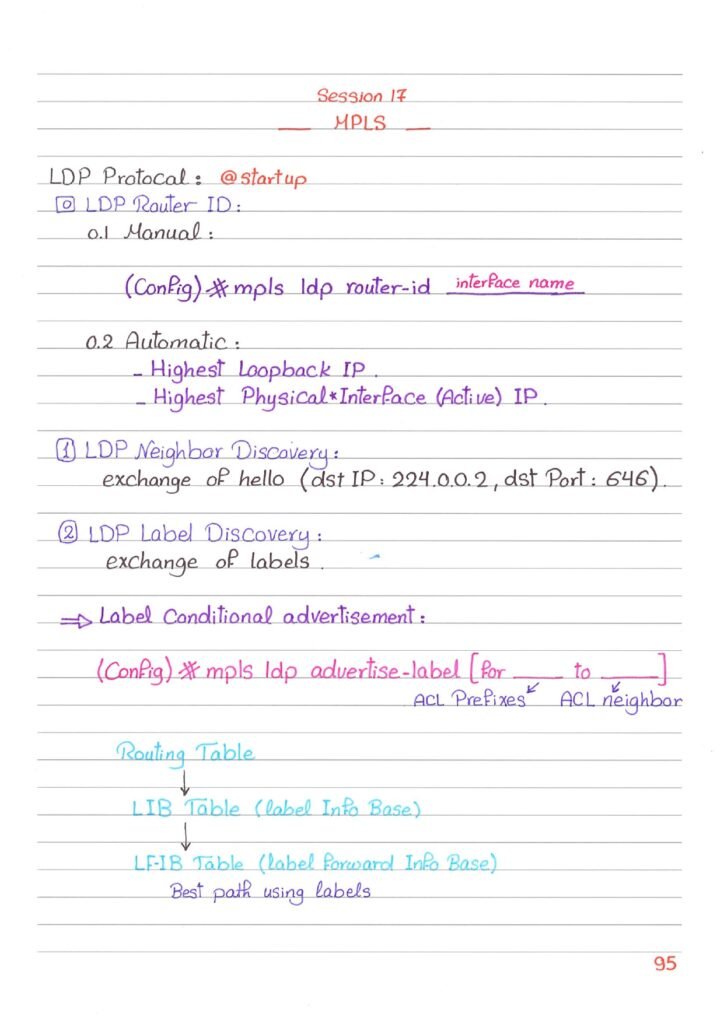 Session 17
MPLS
LDP Protocal : @startup
0 LDP Router ID :
0.1 Manual :
(Config) # mpls ldp router-id interface name
0.2 Automatic :
- Highest Loopback IP.
- Highest Physical * Interface (Active) IP.
1 LDP Neighbor Discovery :
exchange of hello (dst IP : 224.0.0.2, dst Port : 646).
2 LDP Label Discovery :
exchange of labels.
⇒ Label Conditional advertisement :
(Config) # mpls ldp advertise-label [for ____ to ____]
ACL Prefixes ↙ ACL neighbor ↙
Routing Table
↓
LIB Table (label Info Base)
↓
LF-IB Table (label forward Info Base)
Best path using labels
95